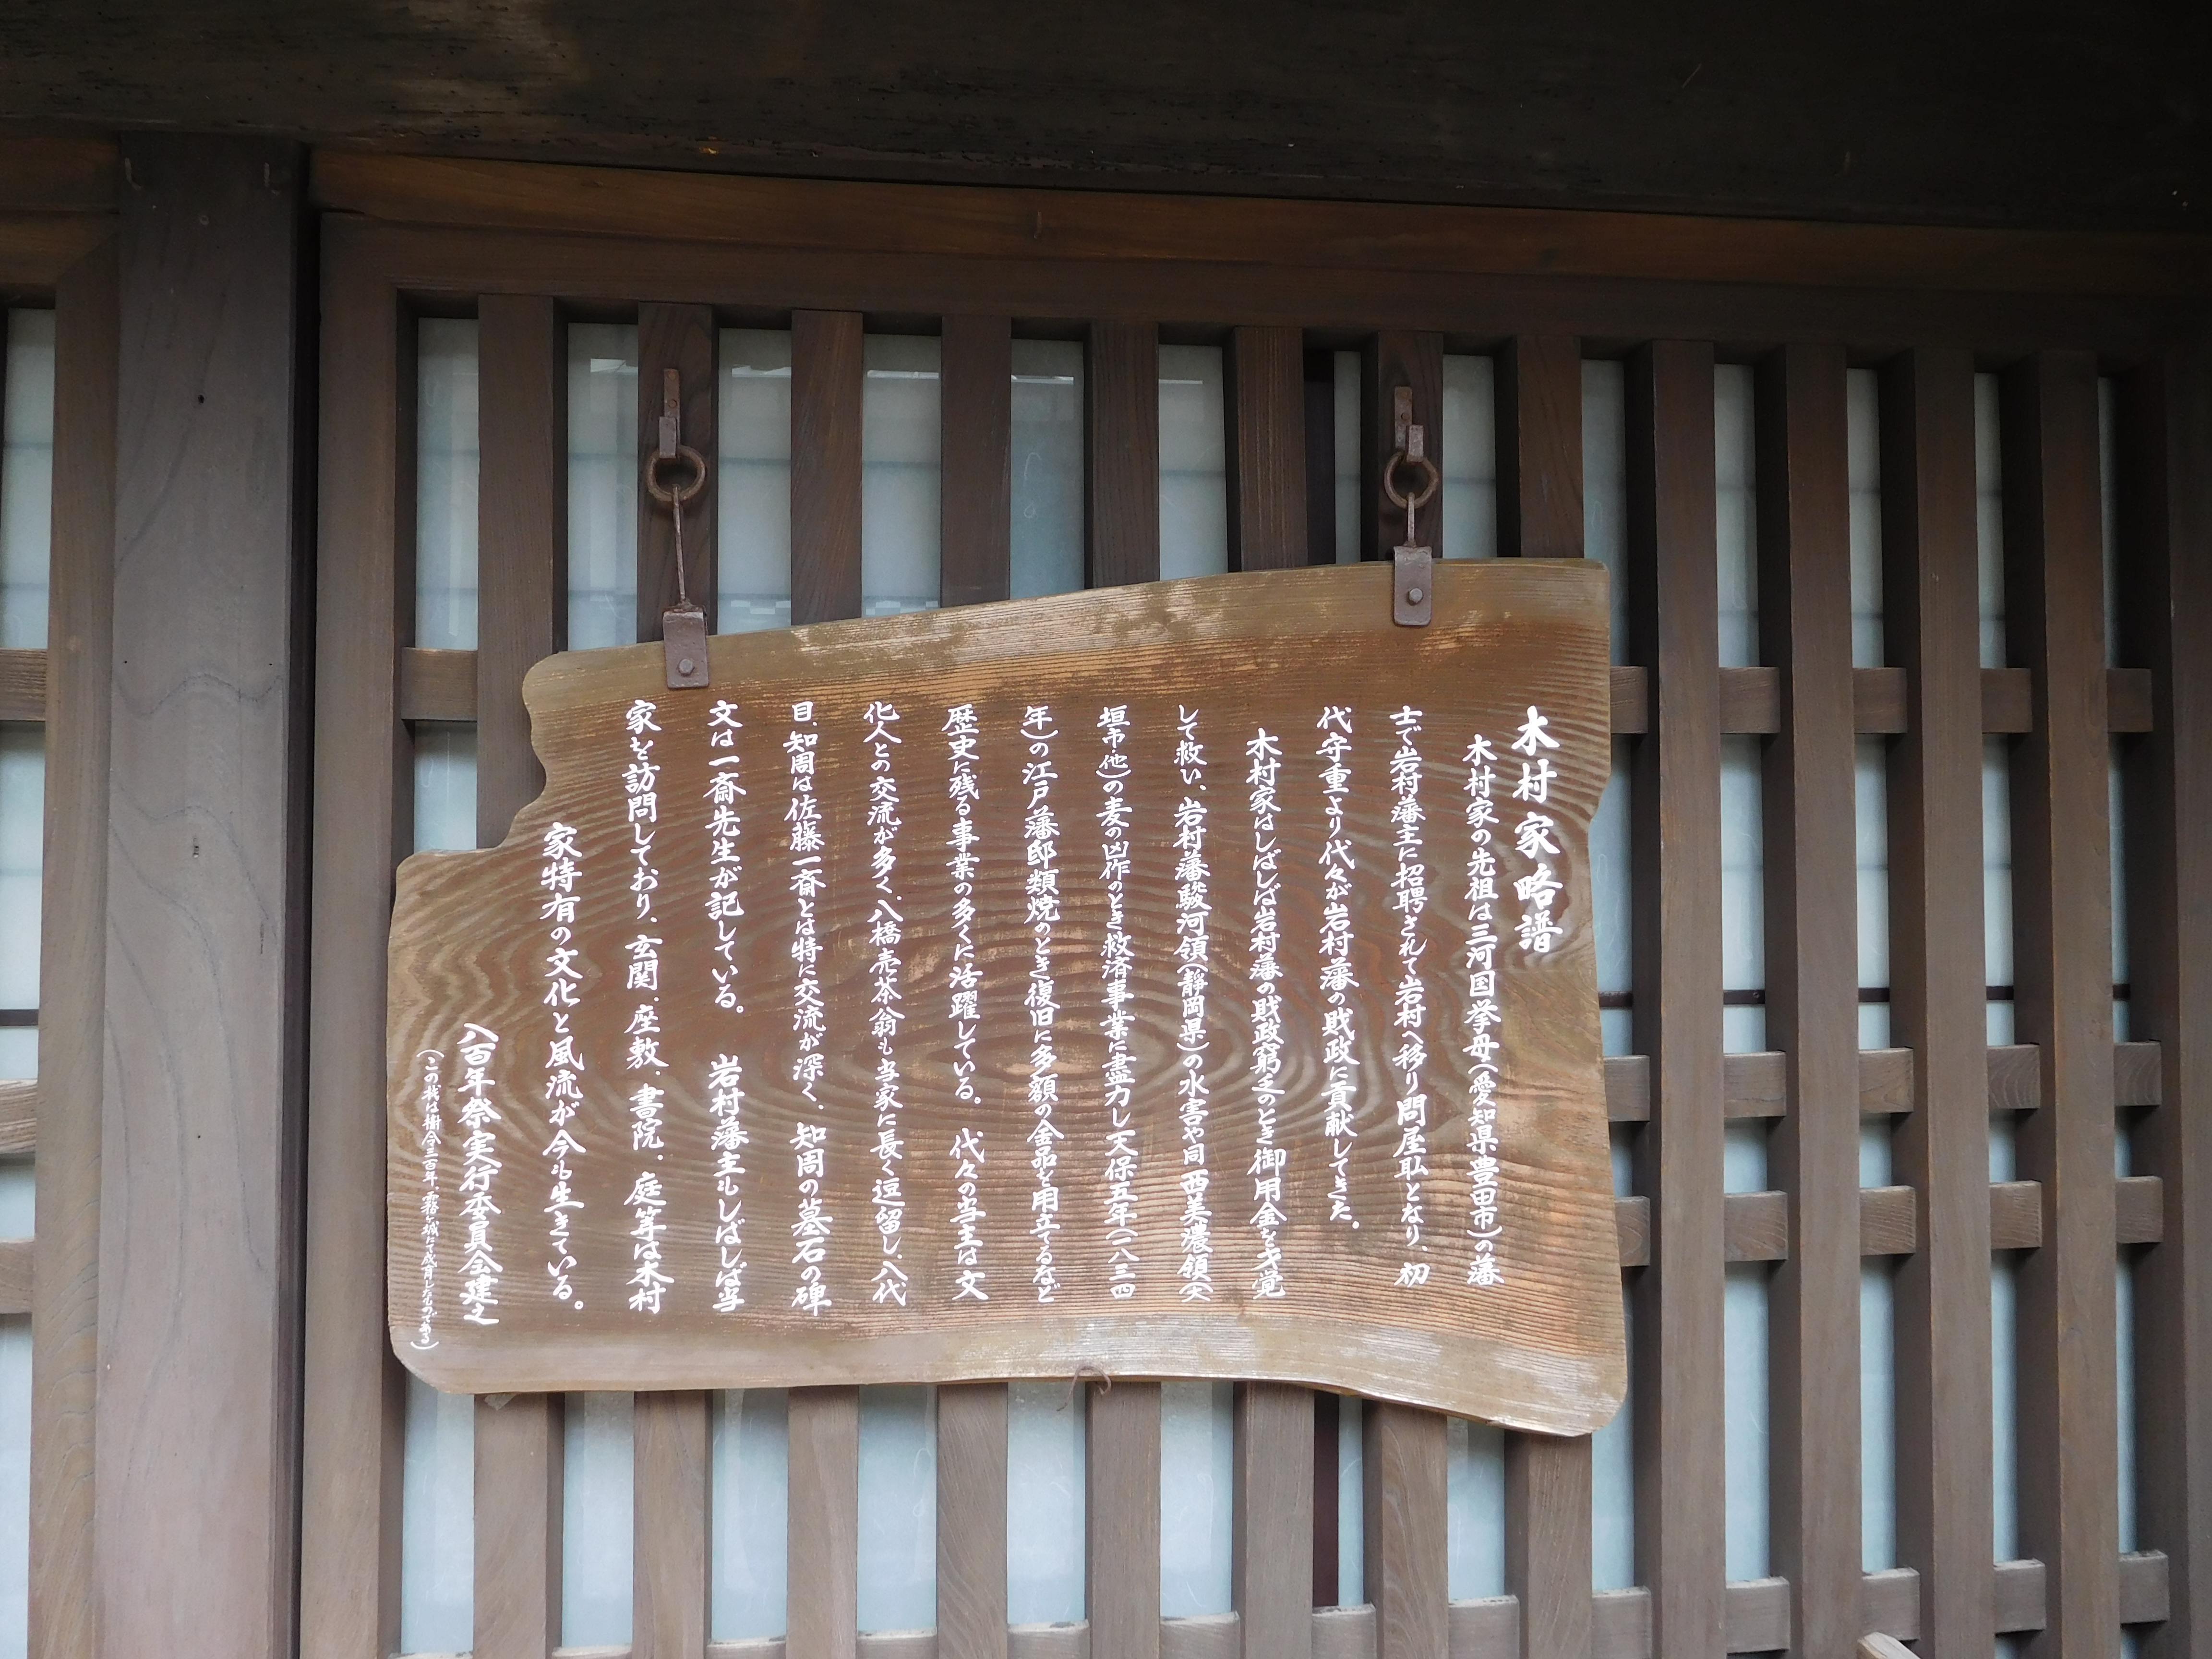 木村家略譜
木村家の先祖は三河国挙母(愛知県豊田市)の藩
士で岩村藩主に招聘されて岩村へ移り問屋耺となり、初
代守重より代々が岩村藩の財政に貢献してきた。
木村家はしばしば岩村藩の財政窮乏のとき御用金を才覚
して救い、岩村藩駿河領(静岡県)の水害や同西美濃領(大
垣市他)の麦の凶作のとき救済事業に盡力し天保五年(一八三四
年)の江戸藩邸類焼のとき復旧に多額の金品を用立てるなど
歴史に残る事業の多くに活躍している。代々の当主は文
化人との交流が多く、八橋売茶翁も当家に長く逗留し、八代
目、知周は佐藤一斎とは特に交流が深く、知周の墓石の碑
文は一斎先生が記している。岩村藩主もしばしば当
家を訪問しており、玄関、座敷、書院、庭等は木村
家特有の文化と風流が今も生きている。
八百年祭実行委員会建之
(この板は樹令三百年霧ヶ城にて成育したものである)